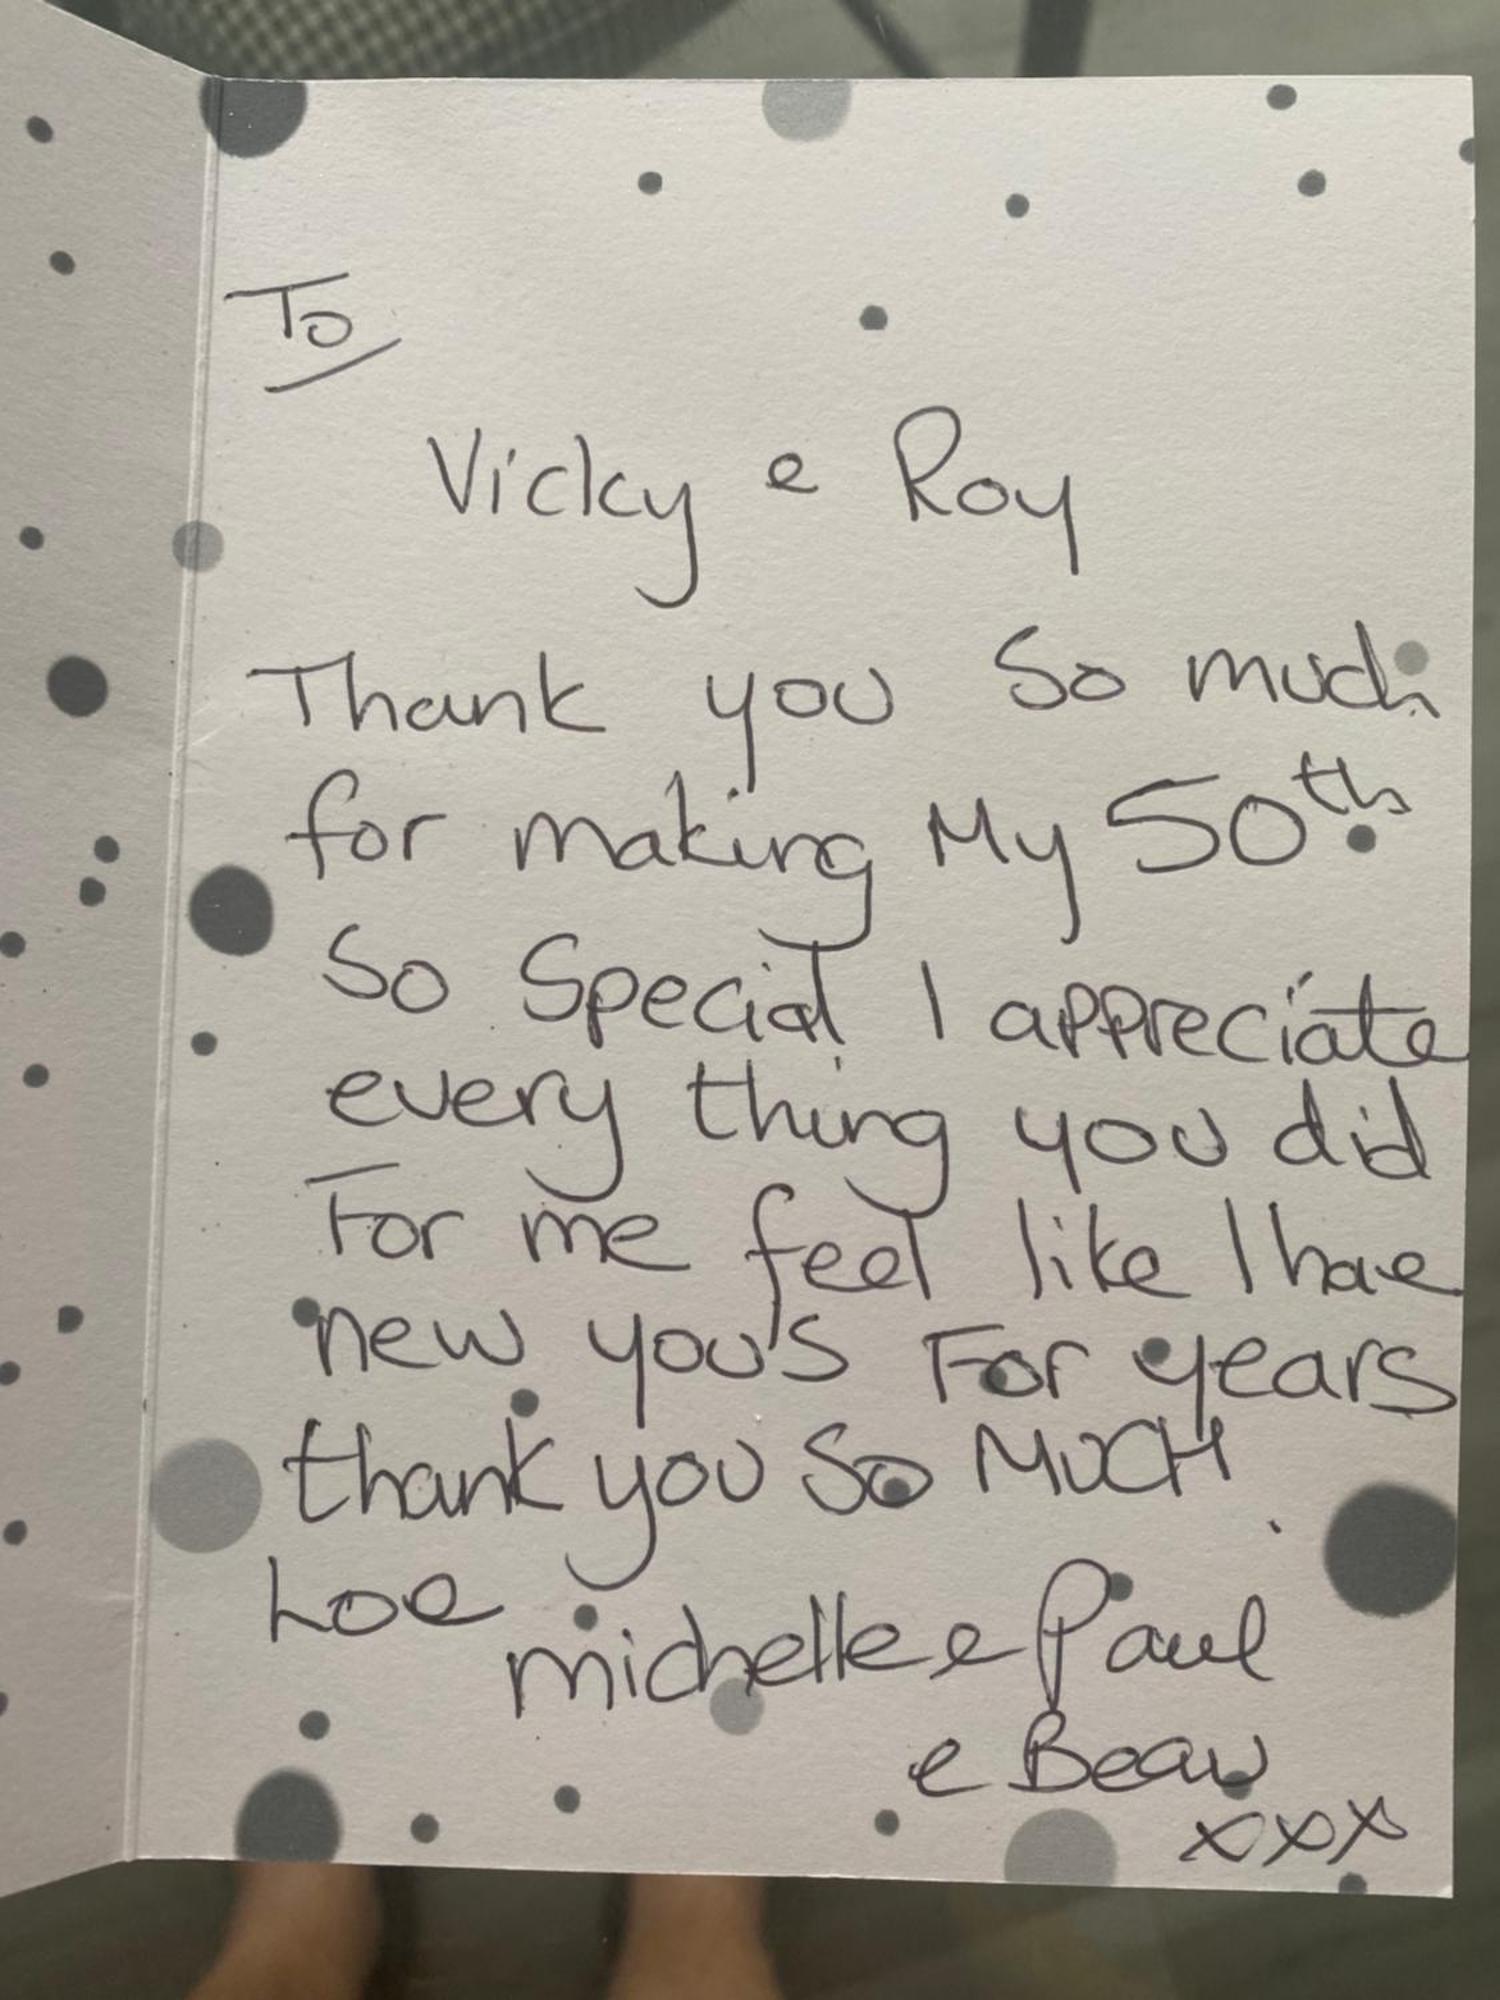 To
Vicky e Roy
Thank you so much
for making My 50th
So Special I appreciate
every thing you did
For me feel like I hae
new you's For years
thank you So MUCH.
Loe
michelle e Paul
e Beau
xxx